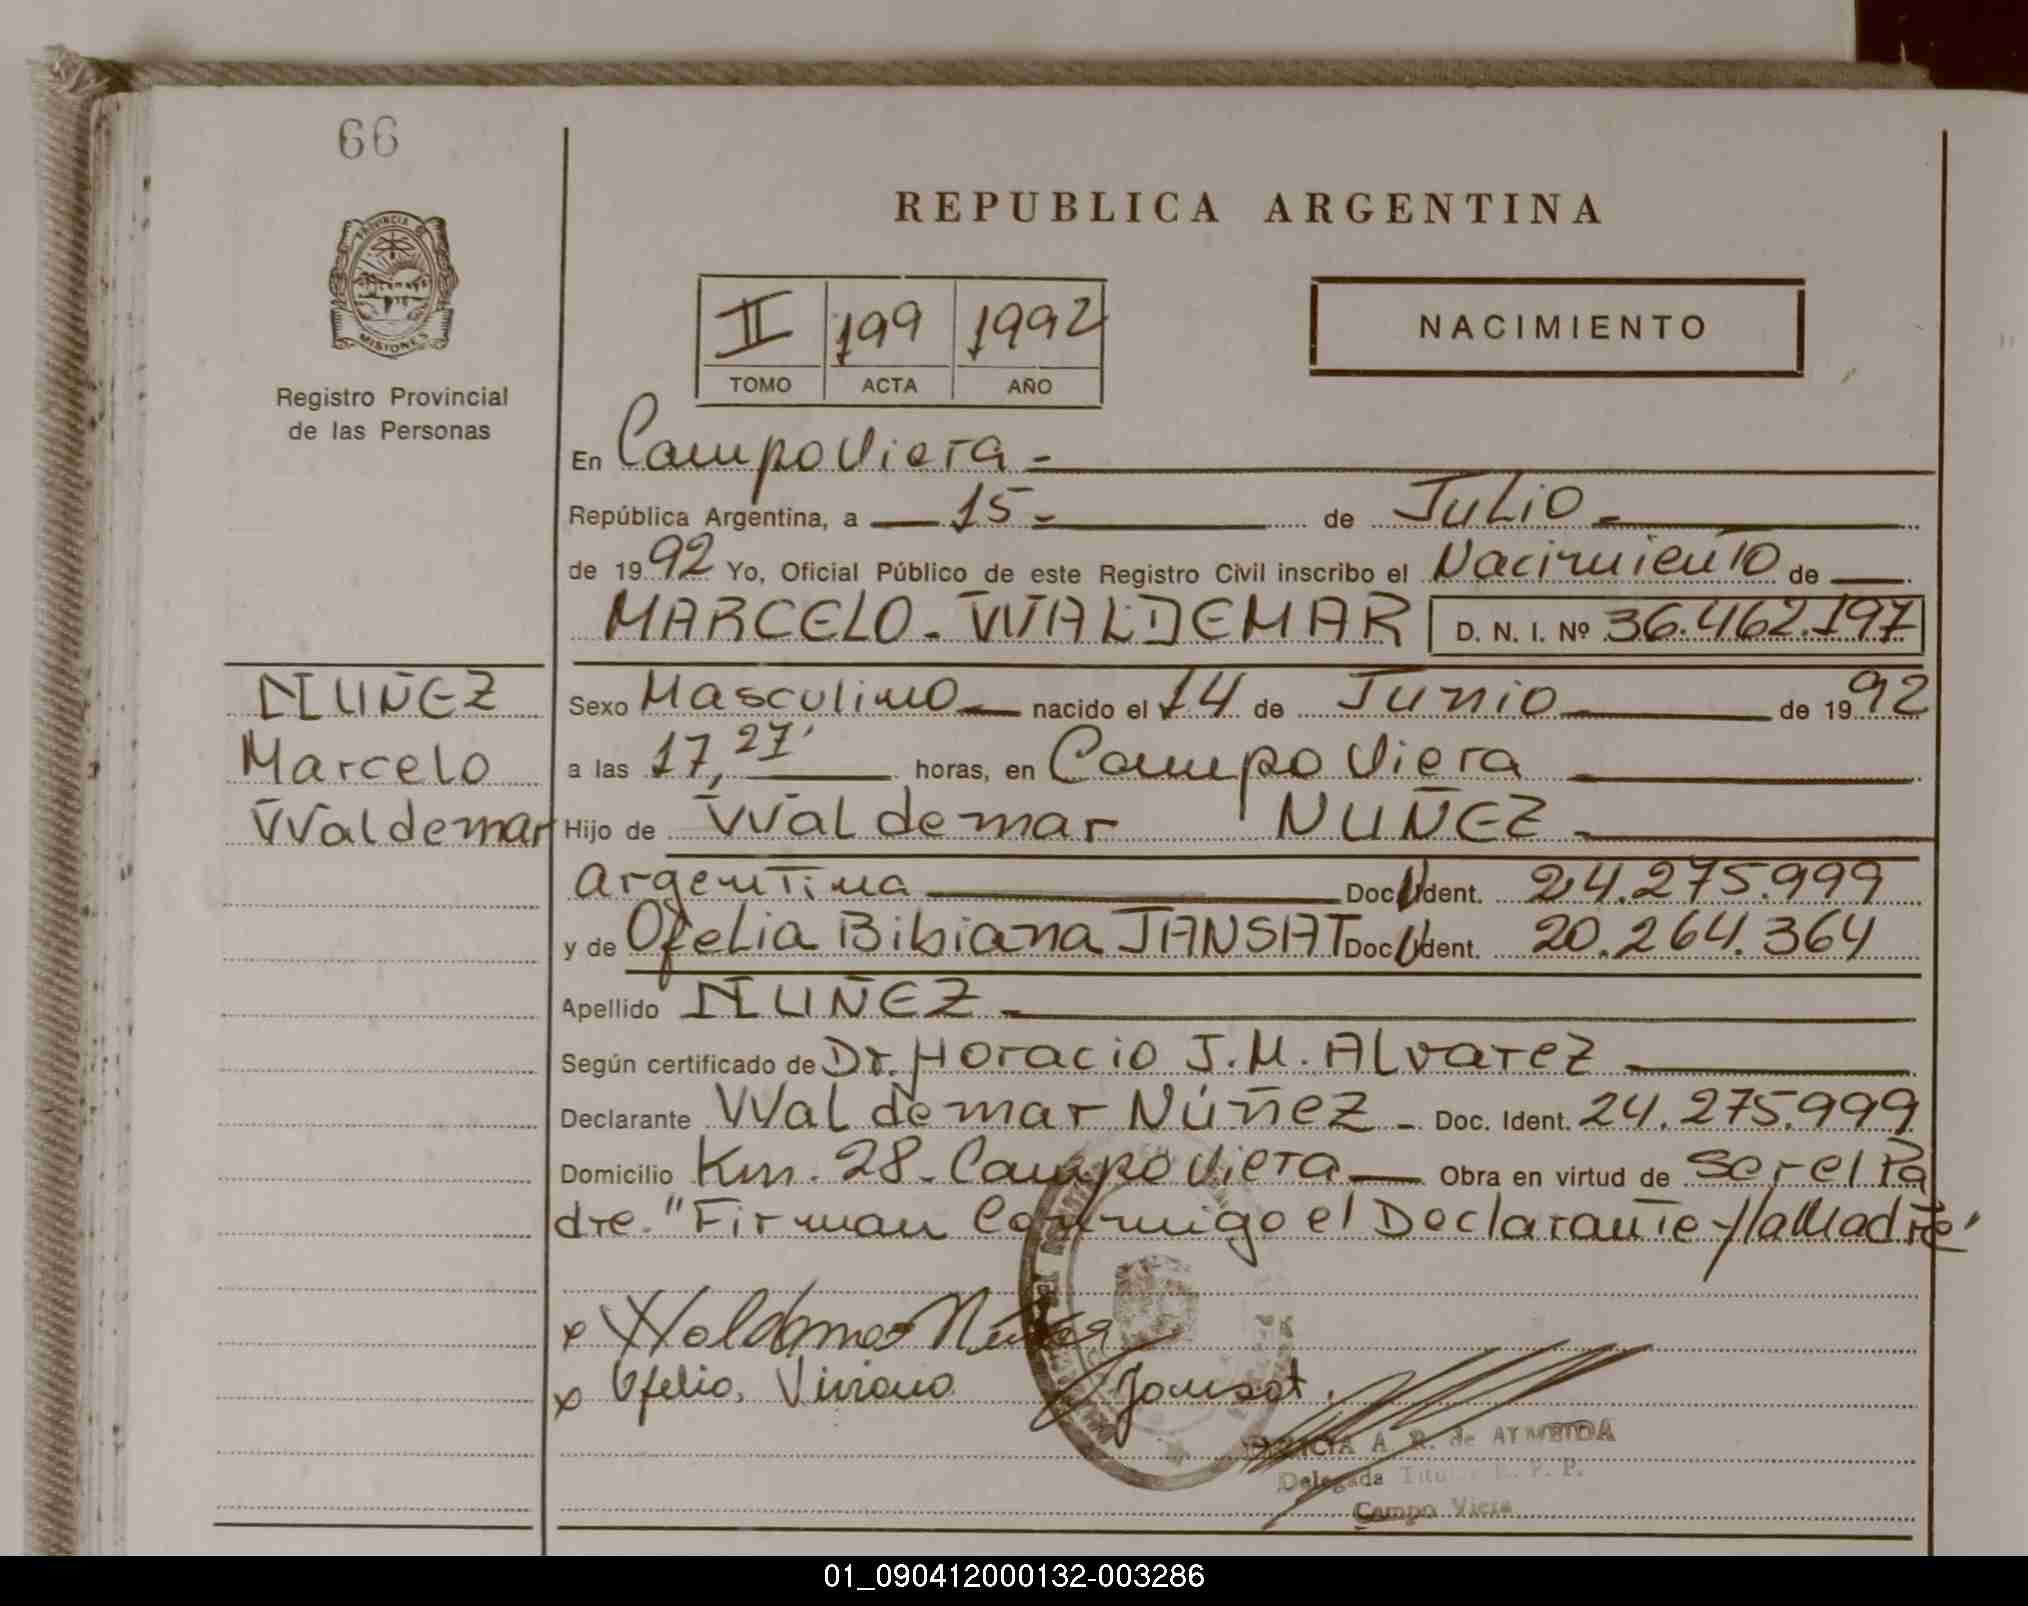 66
PROVINCIA DE
MISIONES
Registro Provincial
de las Personas
NUÑEZ
Marcelo
Waldemar
REPUBLICA ARGENTINA
II 199 1992
TOMO ACTA AÑO
NACIMIENTO
En Campo Viera -
República Argentina, a 15 - de Julio -
de 1992 Yo, Oficial Público de este Registro Civil inscribo el Nacimiento de
MARCELO - WALDEMAR D. N. I. Nº 36.462.197
Sexo Masculino nacido el 14 de Junio de 1992
a las 17,27' horas, en Campo Viera
Hijo de Waldemar NUÑEZ -
Argentina Doc. Ident. 24.275.999
y de Ofelia Bibiana JANSAT Doc. Ident. 20.264.364
Apellido NUÑEZ -
Según certificado de Dr. Horacio J. M. Alvarez
Declarante Waldemar Núñez - Doc. Ident. 24.275.999
Domicilio Km. 28 - Campo Viera Obra en virtud de ser el Pa
dre. "Firman Conmigo el Declarante y la Madre"
x Waldemar Núñez
x Ofelia, Viviana Jansat.
A. R. de ALMEIDA
Delegada Titular R. P. P.
Campo Viera
01_090412000132-003286